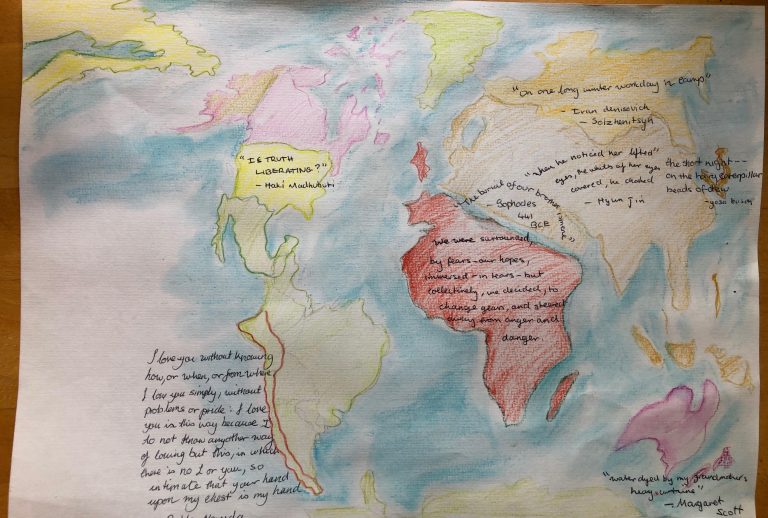 "On one long winter workday in camp"
- Ivan denisovich
- Solzhenitsyn
"IS TRUTH
LIBERATING?"
- Haki Madhubuti
"When he noticed her lifted
eyes, the whites of her eyes
covered, he choked
- Hyun Jin
the short night--
on the hairy caterpillar
beads of dew
-yosa buson
"The burial of our brother
- Sophocles
441
BCE
We were surrounded,
by fears-our hopes,
immersed-in tears-but
collectively, we decided, to
change gears, and steered
away from anger and
danger
I love you without knowing
how, or when, or from where,
I lov you simply, without
problems or pride: I love
you in this way because I
do not know anyother way
of loving but this, in which
there is no I or you, so
intimate that your hand
upon my chest is my hand
"water dyed by my grandmother's
heavy
- Margaret
Scott